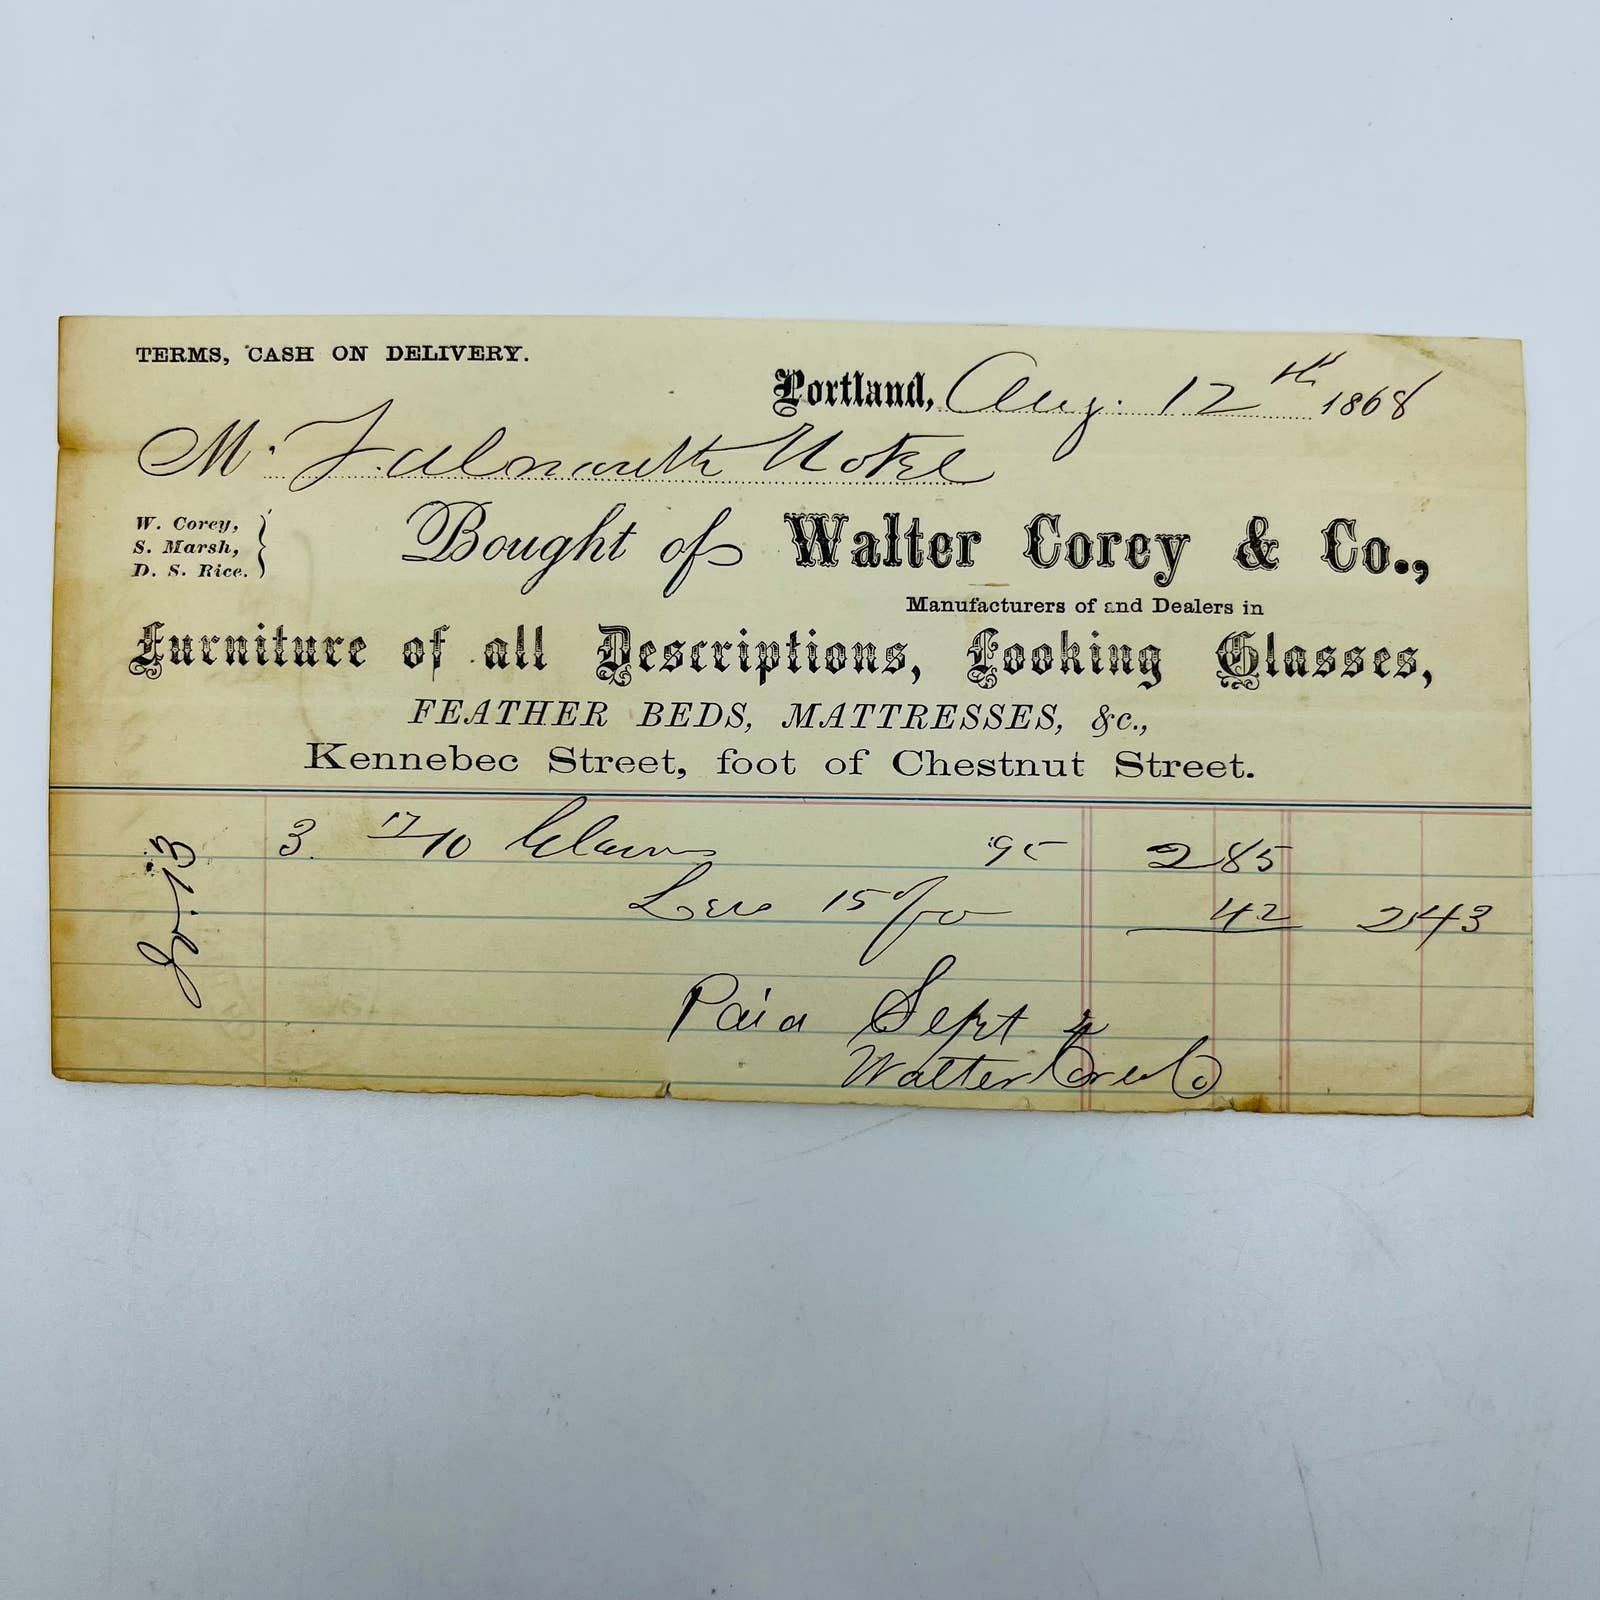 TERMS, CASH ON DELIVERY.
Portland, Aug. 12th 1868
M. Falmouth Hotel
W. Corey,
S. Marsh,
D. S. Rice.
Bought of Walter Corey & Co.,
Manufacturers of and Dealers in
Furniture of all Descriptions, Looking Glasses,
FEATHER BEDS, MATTRESSES, &c.,
Kennebec Street, foot of Chestnut Street.
3. 95 2 85
Less 15% 42 2 43
Paid Sept
Walter Corey Co